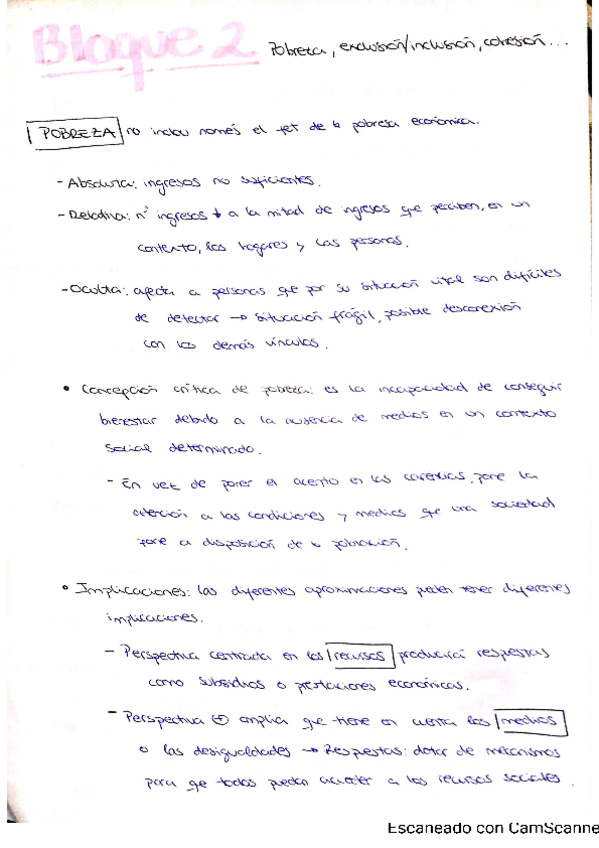 Bloque 2 Pobreza, exclusión/inclusión, cohesión...
POBREZA no inclou només el fet de la pobresa econòmica.
- Absoluta: ingresos no suficientes.
- Relativa: nº ingresos ↓ a la mitad de ingresos que perciben, en un
contexto, los hogares y las personas.
- Oculta: afecta a personas que por su situación vital son difíciles
de detectar → situación frágil, posible desconexión
con los demás vínculos.
• Concepción crítica de pobreza: es la incapacidad de conseguir
bienestar debido a la ausencia de medios en un contexto
social determinado.
- En vez de poner el acento en las carencias, pone la
atención a las condiciones y medios que una sociedad
pone a disposición de la población.
• Implicaciones: las diferentes aproximaciones pueden tener diferentes
implicaciones.
- Perspectiva centrada en los recursos producirá respuestas
como subsidios o prestaciones económicas.
- Perspectiva + amplia que tiene en cuenta los medios
o las desigualdades → Respuestas: dotar de mecanismos
para que todos puedan acceder a los recursos sociales.
Escaneado con CamScanne